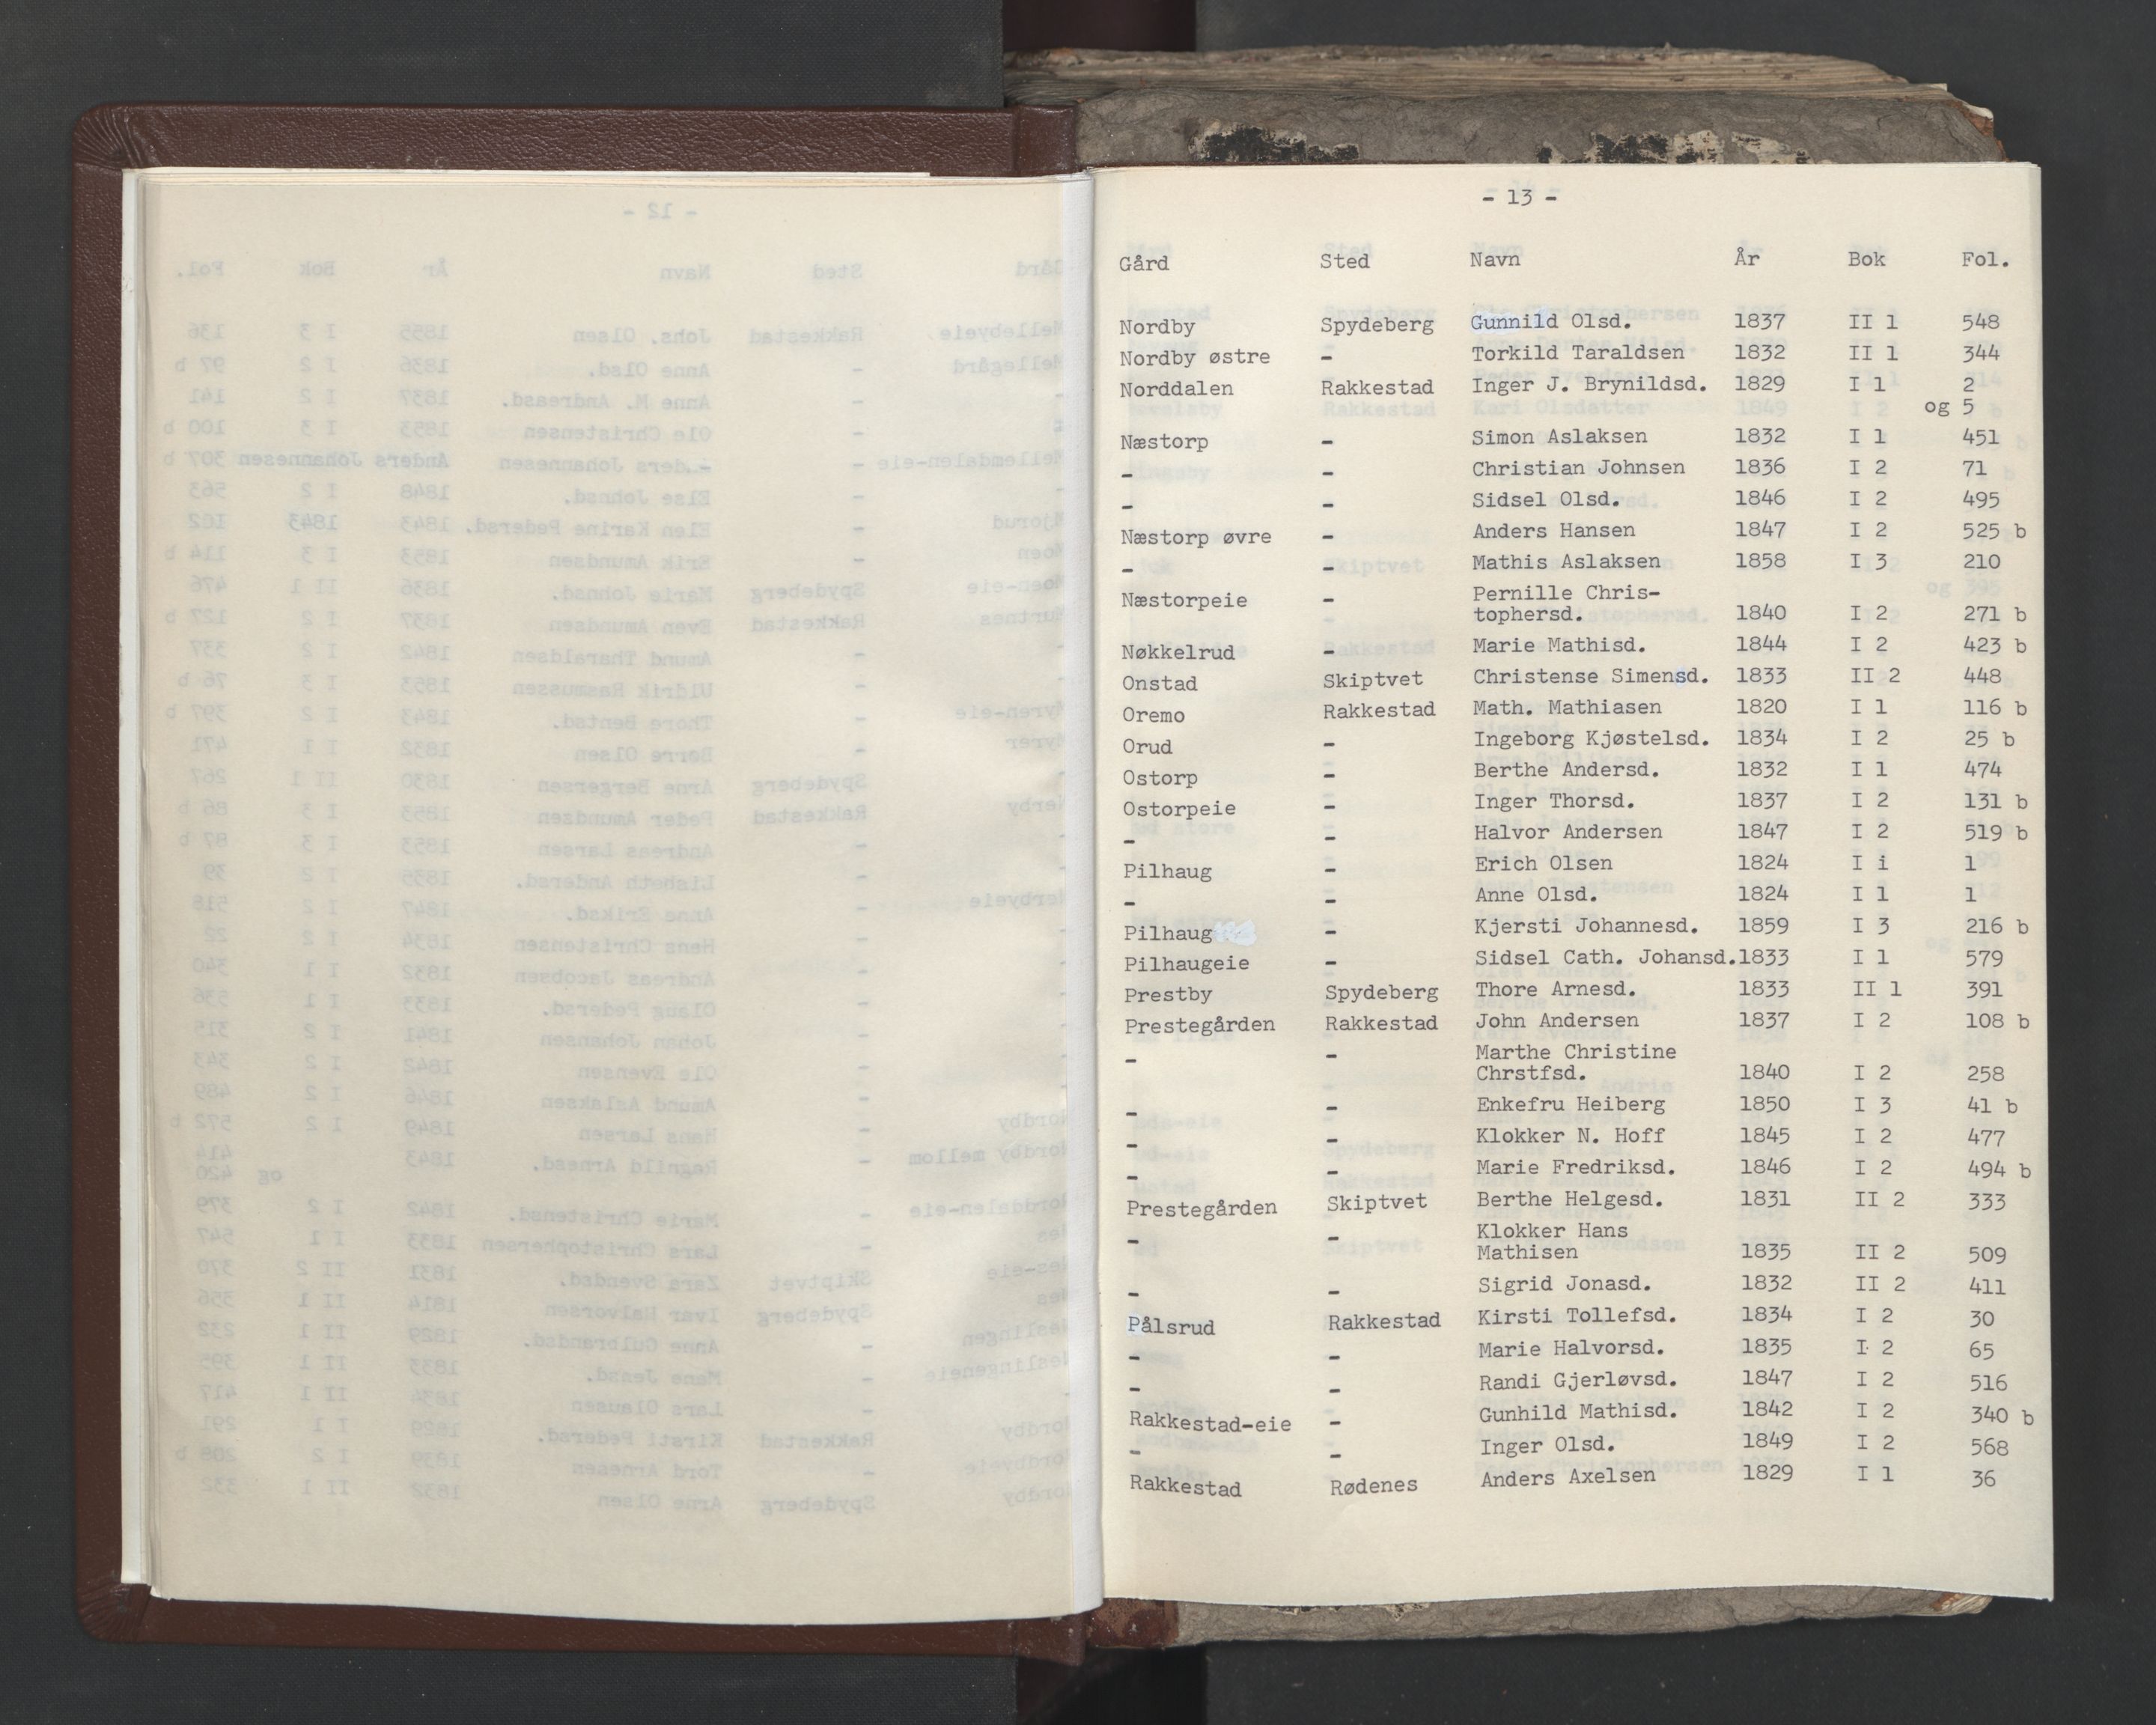 - 13 -
Gård Sted Navn År Bok Fol.
Nordby Spydeberg Gunnild Olsd. 1837 II 1 548
Nordby østre - Torkild Taraldsen 1832 II 1 344
Norddalen Rakkestad Inger J. Brynildsd. 1829 I 1 2
og 5
Næstorp - Simon Aslaksen 1832 I 1 451
- - Christian Johnsen 1836 I 2 71
- - Sidsel Olsd. 1846 I 2 495
Næstorp øvre - Anders Hansen 1847 I 2 525 b
- - Mathis Aslaksen 1858 I 3 210
Næstorpeie - Pernille Chris-
tophersd. 1840 I 2 271 b
Nøkkelrud - Marie Mathisd. 1844 I 2 423 b
Onstad Skiptvet Christense Simensd. 1833 II 2 448
Oremo Rakkestad Math. Mathiasen 1820 I 1 116 b
Orud - Ingeborg Kjøstelsd. 1834 I 2 25 b
Ostorp - Berthe Andersd. 1832 I 1 474
Ostorpeie - Inger Thorsd. 1837 I 2 131 b
- - Halvor Andersen 1847 I 2 519 b
Pilhaug - Erich Olsen 1824 I i 1
- - Anne Olsd. 1824 I 1 1
Pilhaug - Kjersti Johannesd. 1859 I 3 216 b
Pilhaugeie - Sidsel Cath. Johansd.1833 I 1 579
Prestby Spydeberg Thore Arnesd. 1833 II 1 391
Prestegården Rakkestad John Andersen 1837 I 2 108 b
- - Marthe Christine
Chrstfsd. 1840 I 2 258
- - Enkefru Heiberg 1850 I 3 41 b
- - Klokker N. Hoff 1845 I 2 477
- - Marie Fredriksd. 1846 I 2 494 b
Prestegården Skiptvet Berthe Helgesd. 1831 II 2 333
- - Klokker Hans
Mathisen 1835 II 2 509
- - Sigrid Jonasd. 1832 II 2 411
Pålsrud Rakkestad Kirsti Tollefsd. 1834 I 2 30
- - Marie Halvorsd. 1835 I 2 65
- - Randi Gjerløvsd. 1847 I 2 516
Rakkestad-eie - Gunhild Mathisd. 1842 I 2 340 b
- - Inger Olsd. 1849 I 2 568
Rakkestad Rødenes Anders Axelsen 1829 I 1 36